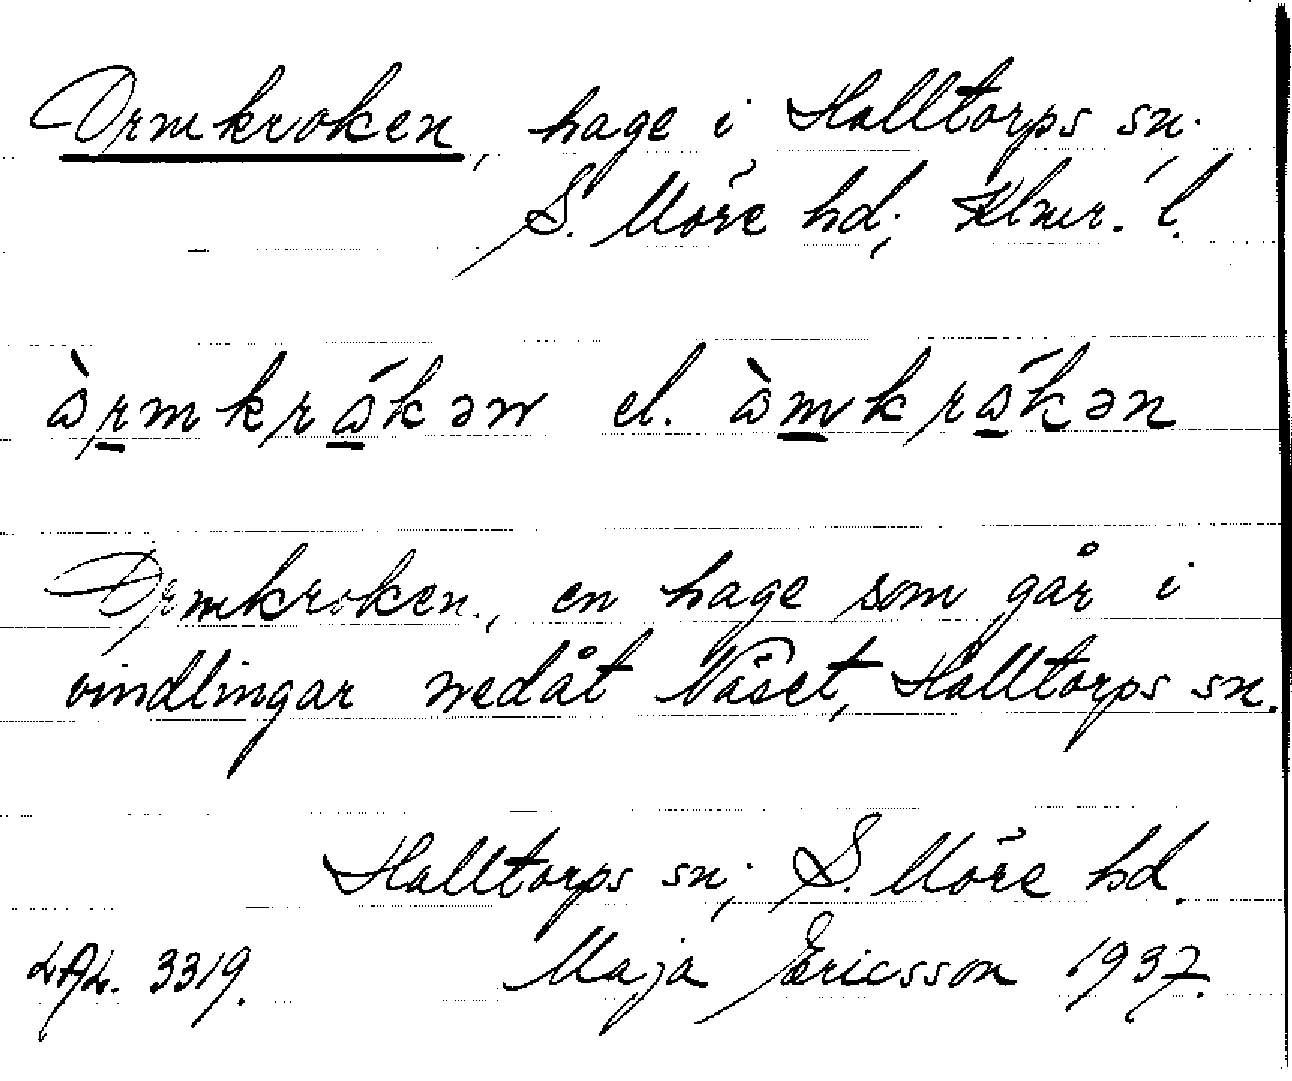 Ormkroken, hage i Halltorps sn.
S. Möre hd; Klmr. l.
àrmkrákən el. àmkrákən
Ormkroken., en hage som går i
vindlingar nedåt Näset, Halltorps sn.
Halltorps sn; S. Möre hd.
LAL. 3319. Maja Ericsson 1937.